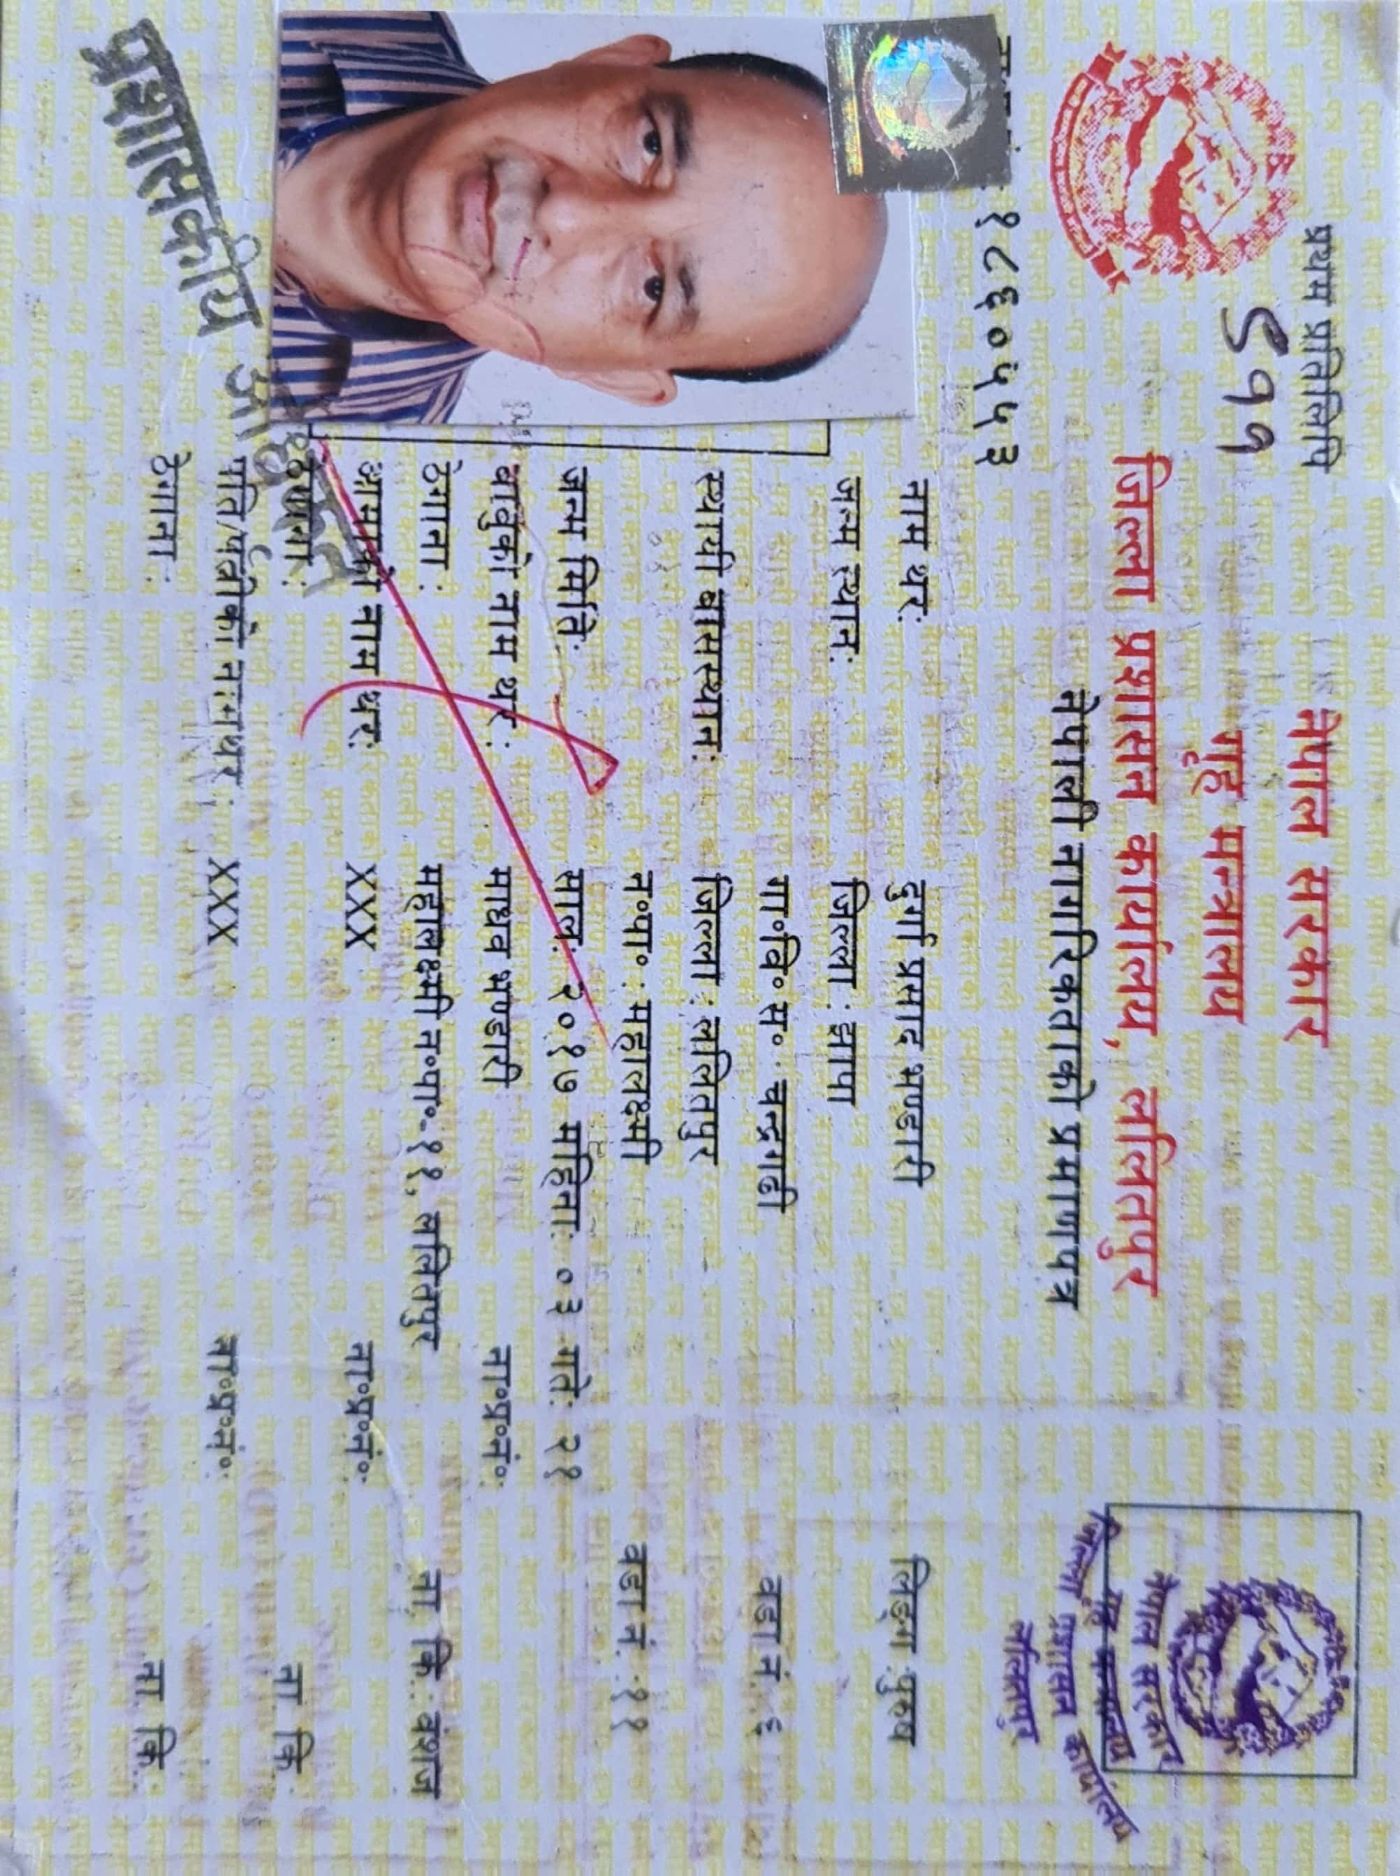 प्रथम प्रतिलिपि
९११
नेपाल सरकार
गृह मन्त्रालय
जिल्ला प्रशासन कार्यालय, ललितपुर
नेपाली नागरिकताको प्रमाणपत्र
नेपाल सरकार
गृह मन्त्रालय
जिल्ला प्रशासन कार्यालय
ललितपुर
१८६०५५३
नाम थर: दुर्गा प्रसाद भण्डारी लिङ्ग :पुरुष
जन्म स्थान: जिल्ला : झापा
गा॰वि॰स॰: चन्द्रगढी वडा नं.:६
स्थायी बासस्थान: जिल्ला : ललितपुर
न॰पा॰ : महालक्ष्मी वडा नं. :११
जन्म मिति: साल: २०१७ महिना: ०३ गते: २१
बाबुको नाम थर : माधव भण्डारी ना॰प्र॰नं॰:
ठेगाना : महालक्ष्मी न॰पा॰-११, ललितपुर ना. कि.: वंशज
आमाको नाम थर: XXX ना॰प्र॰नं॰:
ठेगाना : ना. कि.
पति/पत्नीको नाम थर : XXX ना॰प्र॰नं॰:
ठेगाना : ना. कि.:
प्रशासकीय अधिकृत